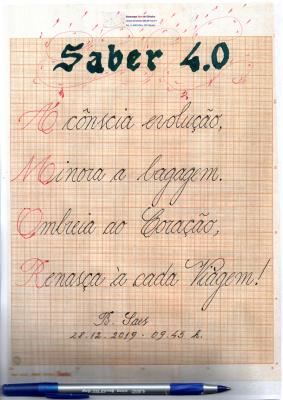 Saber 4.0
A cônscia evolução,
Minora a bagagem.
Ombreia ao Coração,
Renasça à cada Viagem!
B. Saes
28.12.2019 - 09.45 h.